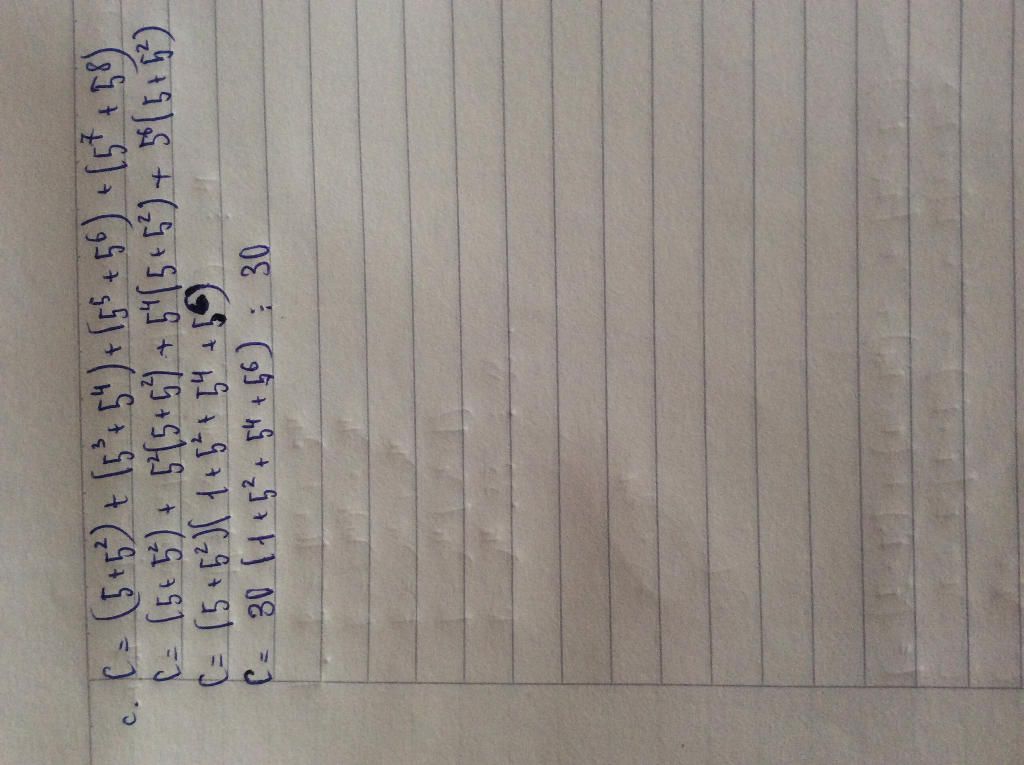 c. C = (5+5²) + (5³+5⁴) + (5⁵+5⁶) + (5⁷+5⁸)
C = (5+5²) + 5²(5+5²) + 5⁴(5+5²) + 5⁶(5+5²)
C = (5+5²)(1+5²+5⁴+5⁶)
C = 30 (1+5²+5⁴+5⁶) ⋮ 30